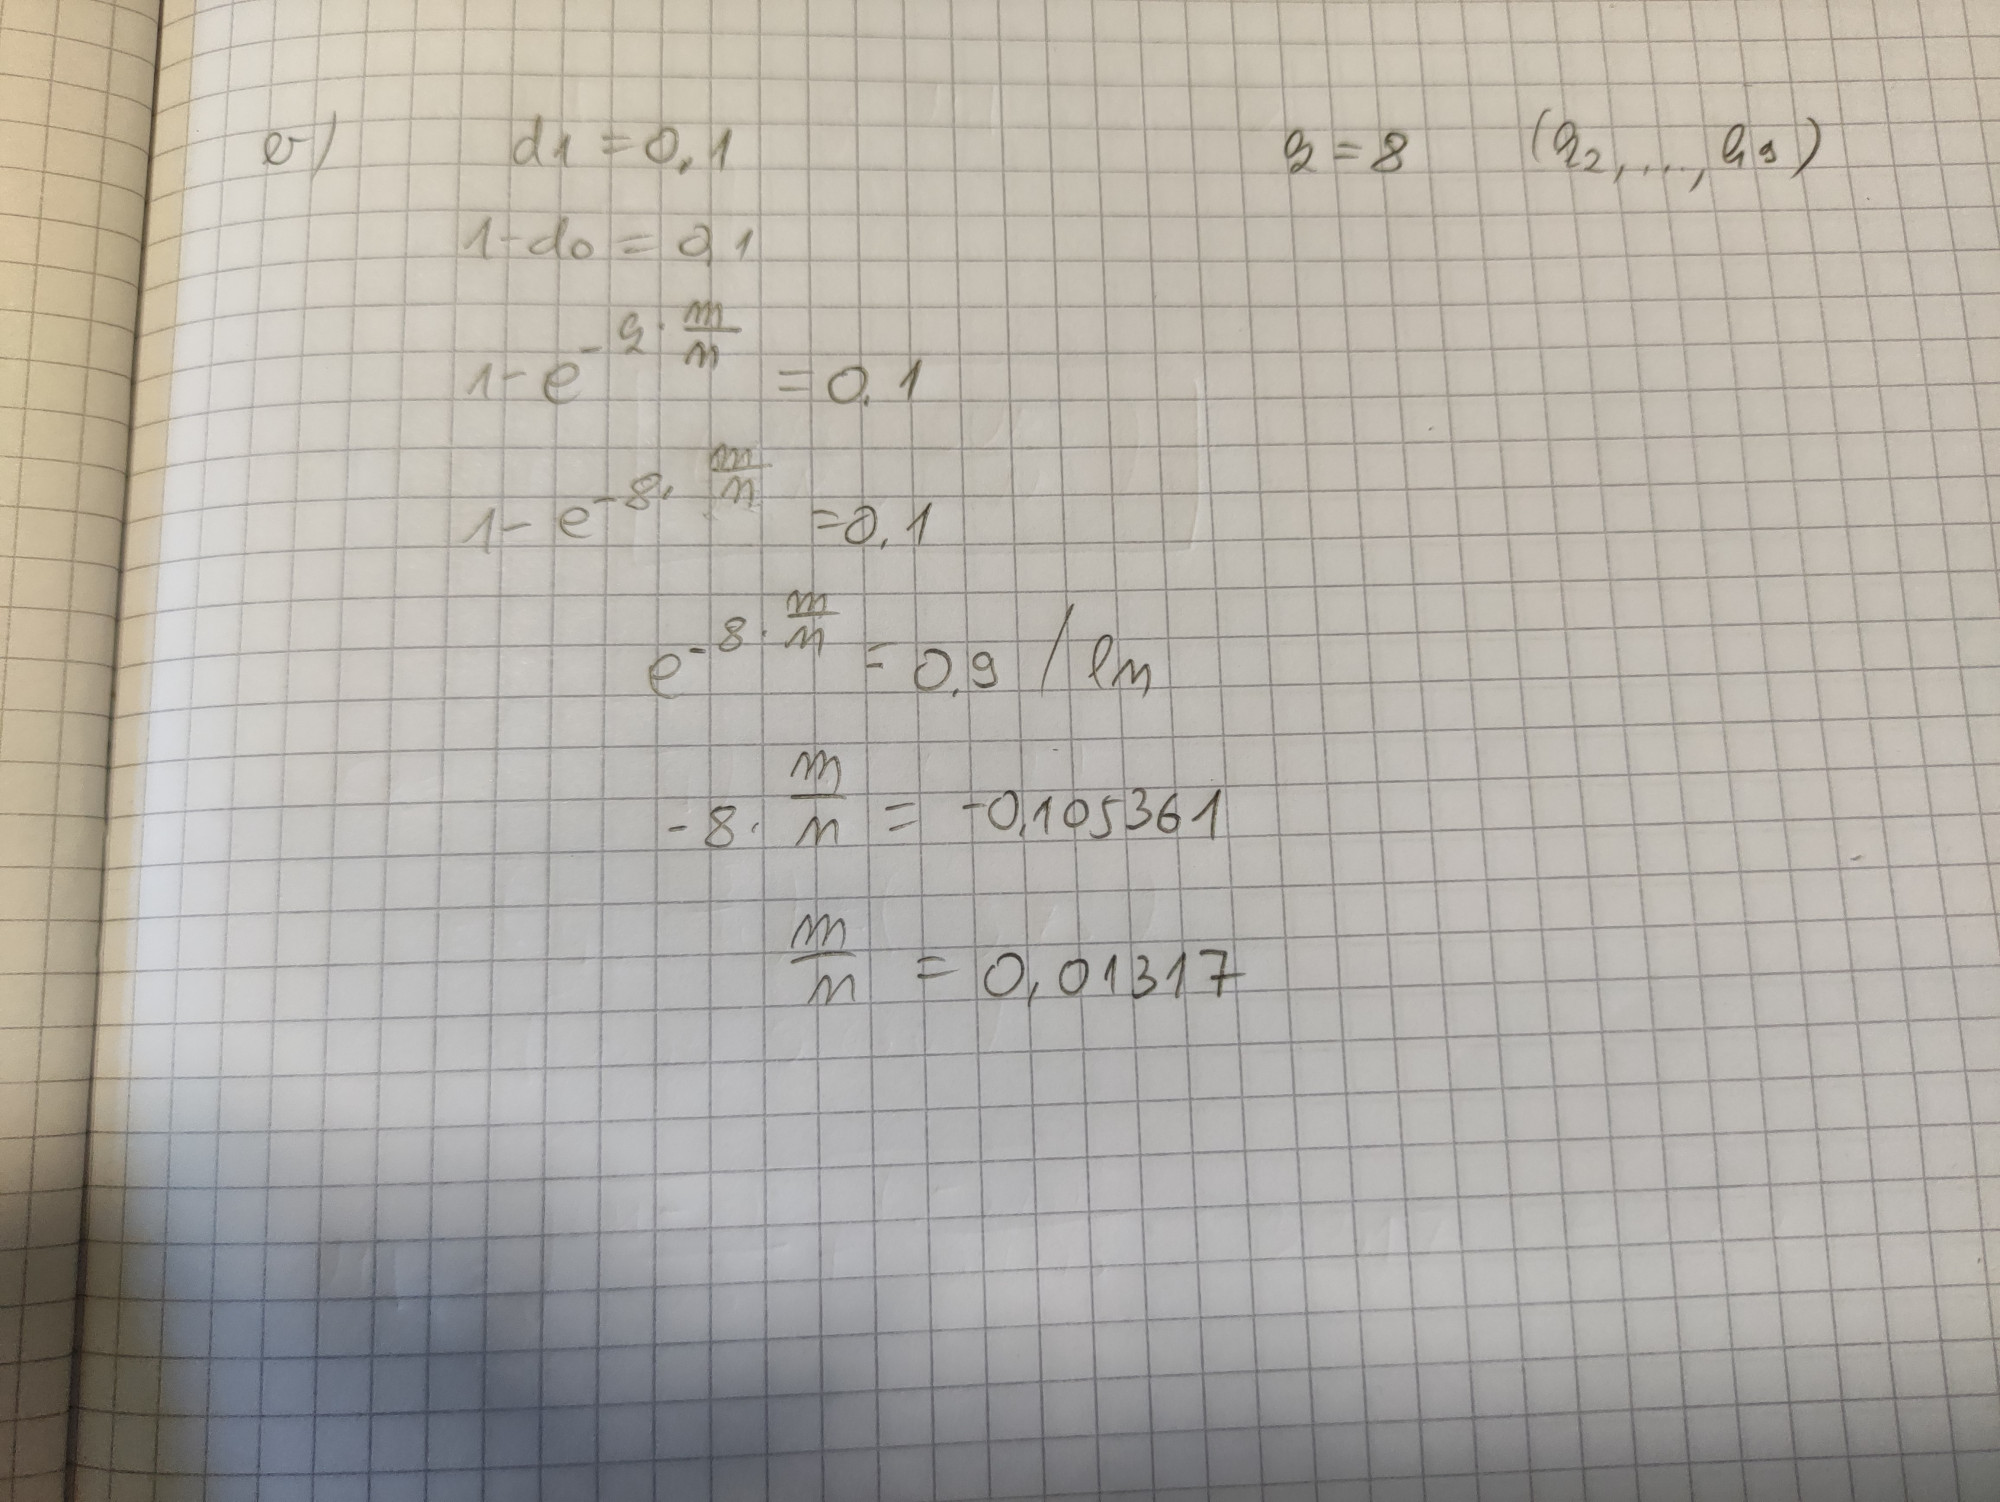 e) d1 = 0,1 q = 8 (h2, ..., h9)
1-d0 = 0,1
1-e^-q·m/n = 0,1
1-e^-8·m/n = 0,1
e^-8·m/n = 0,9 / ln
-8·m/n = -0,105361
m/n = 0,01317